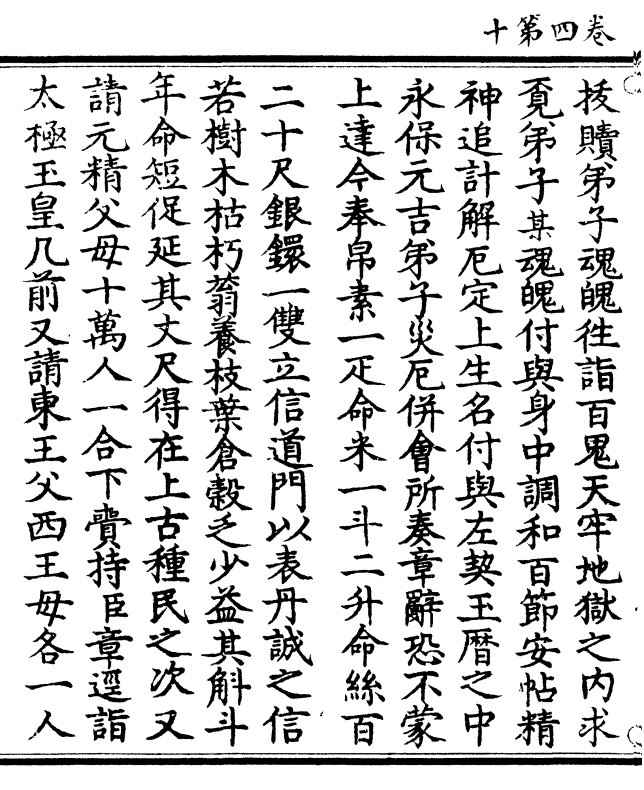 卷四第十
拔贖弟子魂魄徃詣百鬼天牢地獄之内求
覔弟子某魂魄付與身中調和百節安帖精
神追計解厄定上生名付與左契玉曆之中
永保元吉弟子災厄併會所奏章辭恐不蒙
上達今奉帛素一疋命米一斗二升命絲百
二十尺銀鐶一雙立信道門以表丹誠之信
若樹木枯朽蓊養枝葉倉穀乏少益其斛斗
年命短促延其丈尺得在上古種民之次又
請元精父母十萬人一合下賷持臣章逕詣
太極玉皇几前又請東王父西王母各一人